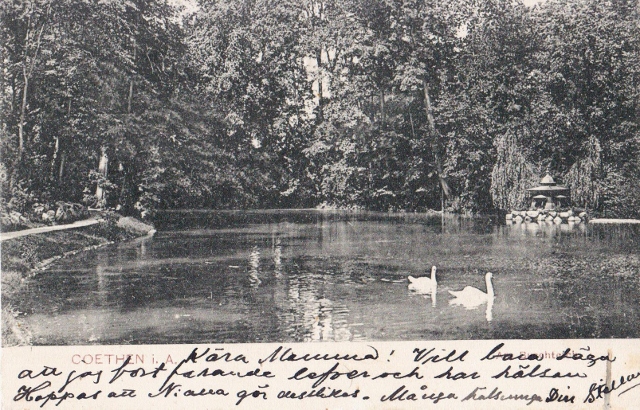 COETHEN i. A.
Kära Mamma! Vill bara säga
att jag fortfarande lefver och har hälsan
Hoppas att Ni alla gör desslikes. Många hälsningar Din